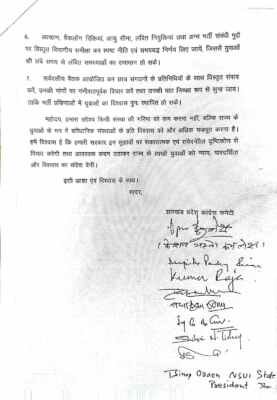 6. आरक्षण, बैकलॉग रिक्तियां, आयु सीमा, लंबित नियुक्तियां तथा अन्य भर्ती संबंधी मुद्दों
पर विस्तृत विभागीय समीक्षा कर स्पष्ट नीति एवं समयबद्ध निर्णय लिए जायें, जिससे युवाओं
की लंबे समय से लंबित समस्याओं का समाधान हो सके।
7. सर्वदलीय बैठक आयोजित कर छात्र संगठनों के प्रतिनिधियों के साथ विस्तृत संवाद
करें, उनकी मांगों पर गंभीरतापूर्वक विचार करें तथा उनकी बात निष्पक्ष रूप से सुना जाय।
ताकि भर्ती प्रक्रियाओं में युवाओं का विश्वास पुनः स्थापित हो सके।
महोदय, हमारा उद्देश्य किसी संस्था की गरिमा को कम करना नहीं, बल्कि राज्य के
युवाओं के मन में संवैधानिक संस्थाओं के प्रति विश्वास को और अधिक मजबूत करना है।
हमें विश्वास है कि हमारी सरकार इन सुझावों पर सकारात्मक एवं संवेदनशील दृष्टिकोण से
विचार करेगी तथा आवश्यक कदम उठाकर राज्य के लाखों युवाओं को न्याय, पारदर्शिता
और विश्वास का संदेश देगी।
इसी आशा एवं विश्वास के साथ।
सादर,
झारखण्ड प्रदेश कांग्रेस कमेटी
Kumar Raja
NSUI State
President